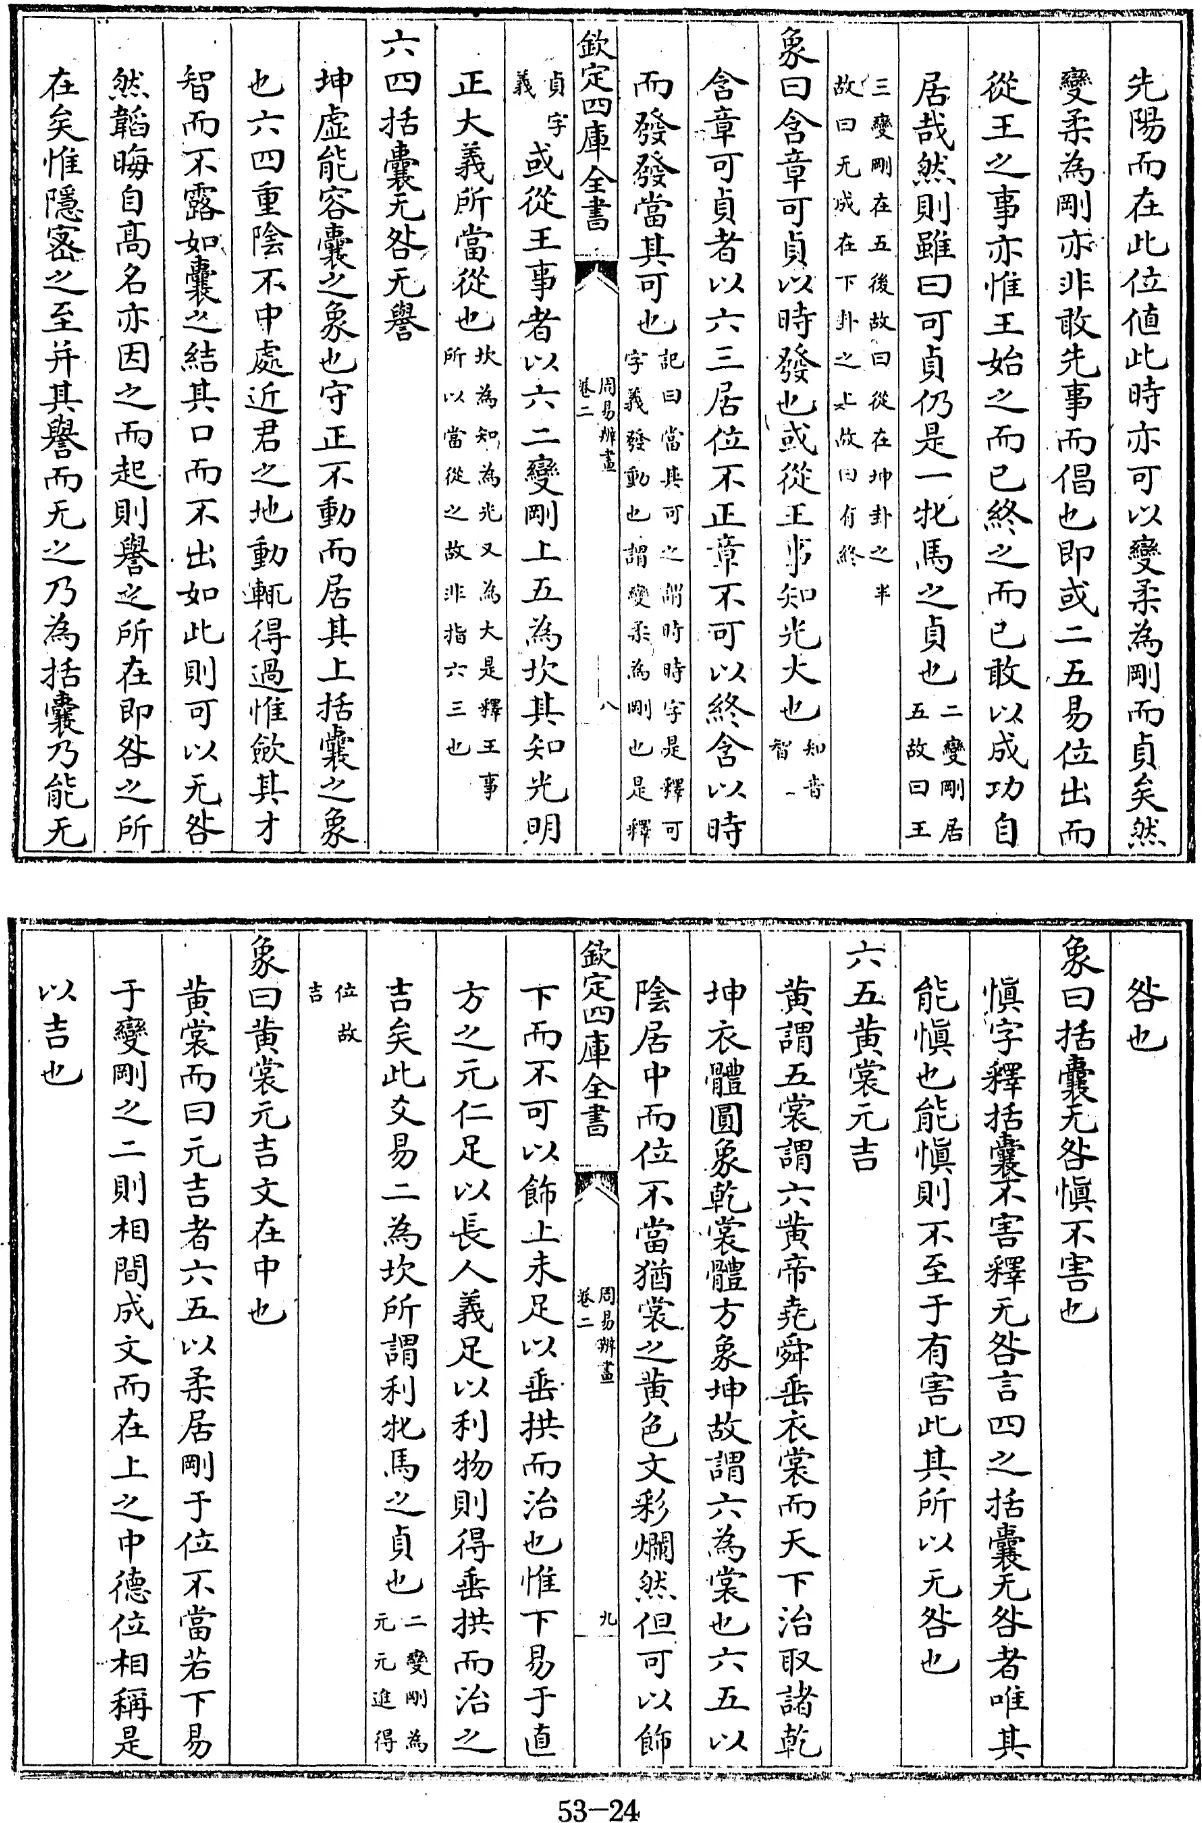 先陽而在此位値此時亦可以變柔為剛而貞矣然
變柔為剛亦非敢先事而倡也即或二五易位出而
從王之事亦惟王始之而已終之而已敢以成功自
居哉然則雖曰可貞仍是一牝馬之貞也二變剛居五故曰王
三變剛在五後故曰從在坤卦之半故曰无成在下卦之上故曰有終
象曰含章可貞以時發也或從王事知光大也知音智
含章可貞者以六三居位不正章不可以終含以時
而發發當其可也記曰當其可之謂時時字是釋可字義發動也謂變柔為剛也是釋
欽定四庫全書
周易辨畫
卷二
八
貞字義或從王事者以六二變剛上五為坎其知光明
正大義所當從也坎為知為光又為大是釋王事所以當從之故非指六三也
六四括囊无咎无譽
坤虛能容囊之象也守正不動而居其上括囊之象
也六四重陰不中處近君之地動輒得過惟斂其才
智而不露如囊之結其口而不出如此則可以无咎
然韜晦自高名亦因之而起則譽之所在即咎之所
在矣惟隱密之至并其譽而无之乃為括囊乃能无
咎也
象曰括囊无咎慎不害也
慎字釋括囊不害釋无咎言四之括囊无咎者唯其
能慎也能慎則不至于有害此其所以无咎也
六五黃裳元吉
黃謂五裳謂六黃帝堯舜垂衣裳而天下治取諸乾
坤衣體圓象乾裳體方象坤故謂六為裳也六五以
陰居中而位不當猶裳之黃色文彩爛然但可以飾
欽定四庫全書
周易辨畫
卷二
九
下而不可以飾上未足以垂拱而治也惟下易于直
方之元仁足以長人義足以利物則得垂拱而治之
吉矣此爻易二為坎所謂利牝馬之貞也二變剛為元元進得
位故吉
象曰黃裳元吉文在中也
黃裳而曰元吉者六五以柔居剛于位不當若下易
于變剛之二則相間成文而在上之中德位相稱是
以吉也
53-24